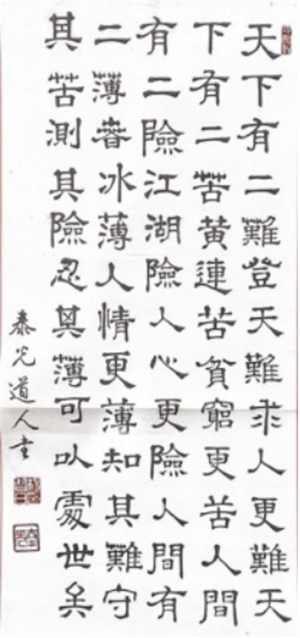 天下有二難登天難求人更難天
下有二苦黄連苦貧窮更苦人間
有二險江湖險人心更險人間有
二薄春冰薄人情更薄知其難守
其苦測其險忍其薄可以處世矣
泰光道人書